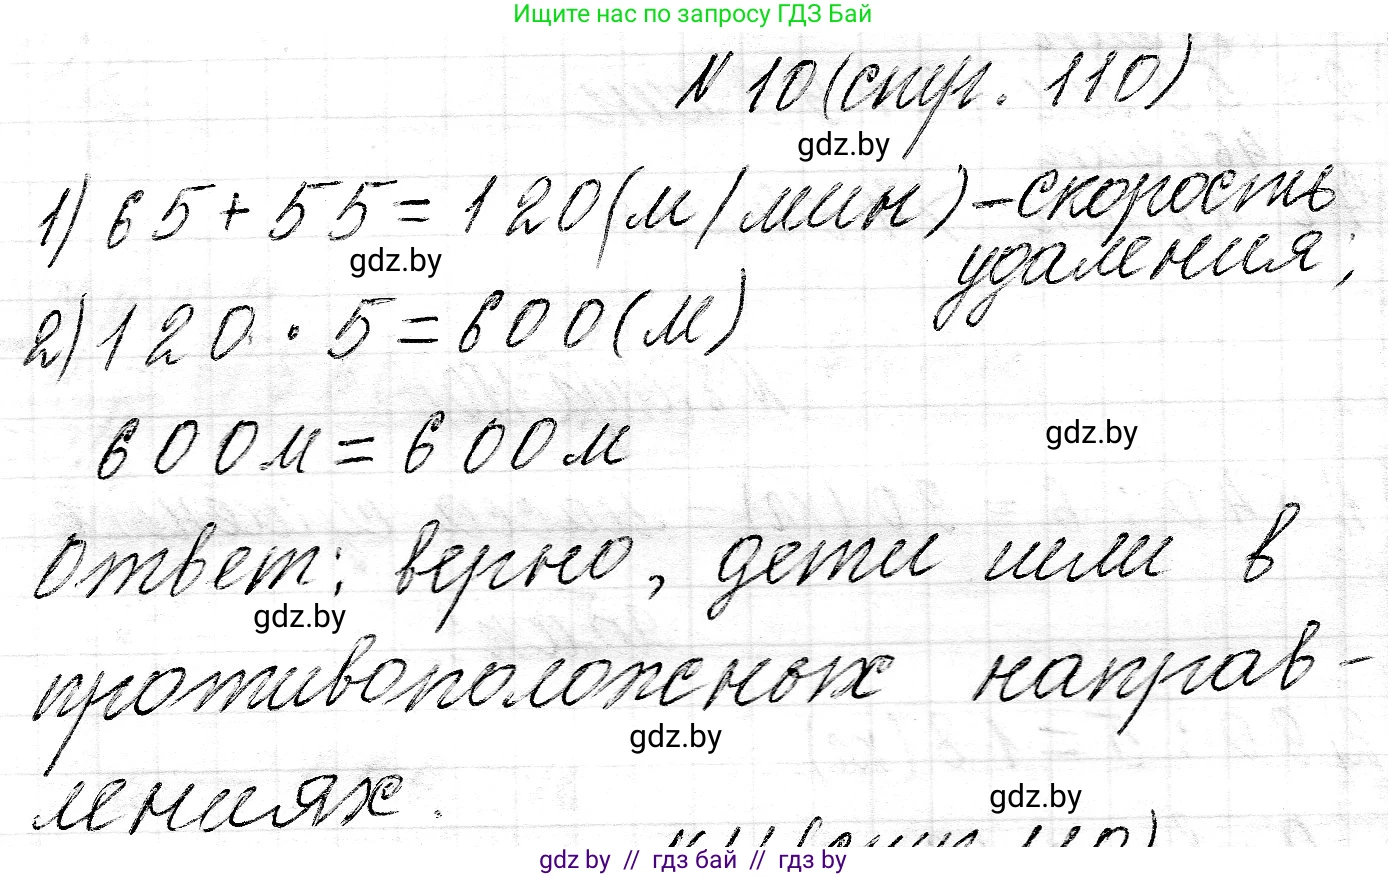 Ищите нас по запросу ГДЗ Бай
N 10 (стр. 110)
gdz.by
1) 65 + 55 = 120 (м/мин) - скорость
удаления;
gdz.by
2) 120 · 5 = 600 (м)
600 м = 600 м
gdz.by
Ответ: верно, дети шли в
gdz.by
противоположных направ-
gdz.by
лениях.
gdz.by
N 11 (стр. 110)
gdz.by // гдз бай // гдз by